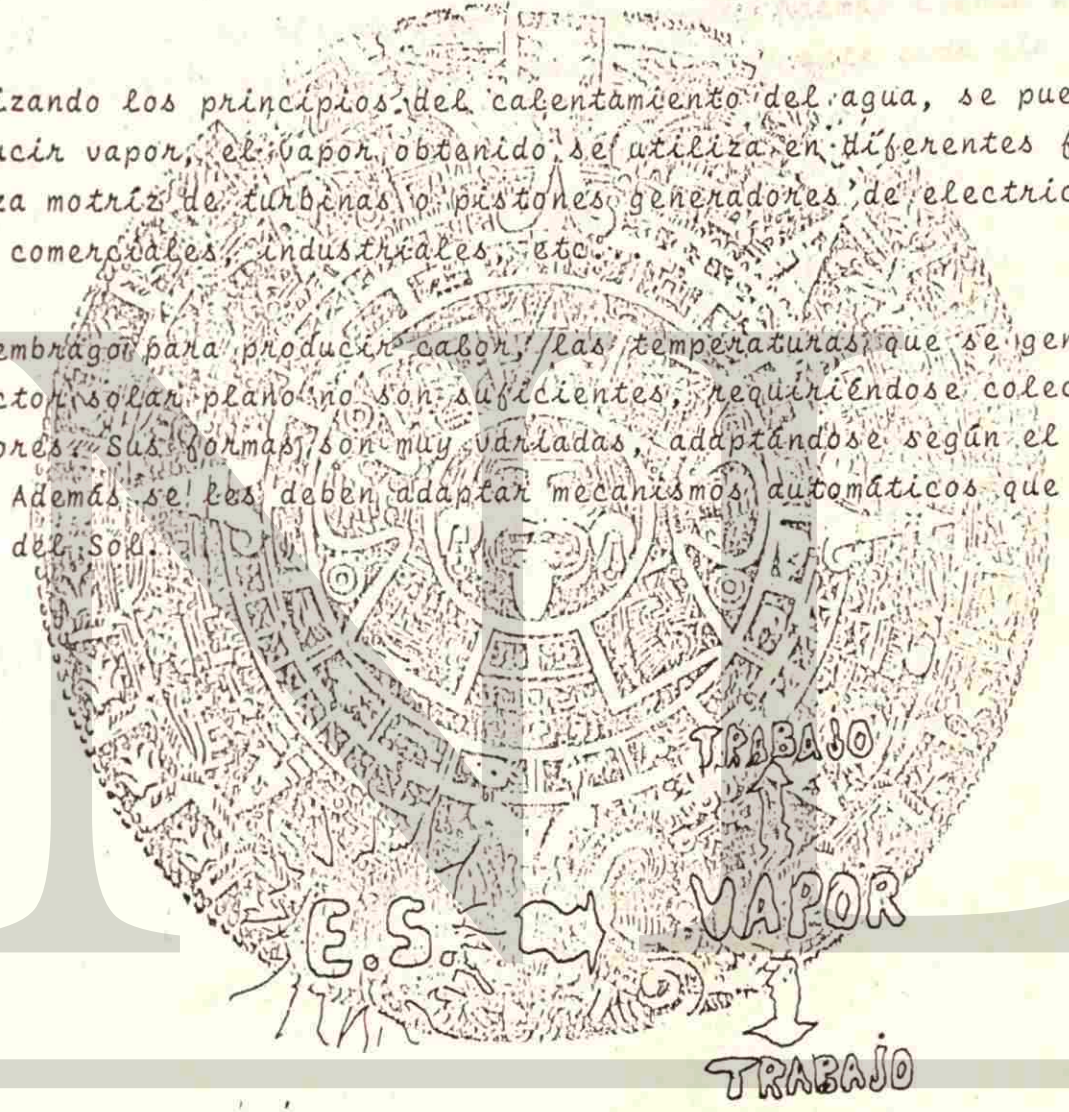 izando los principios del calentamiento del agua, se pue
ucir vapor, el vapor obtenido se utiliza en diferentes f
za motríz de turbinas o pistones generadores de electric
comerciales, industriales, etc...
embrago para producir calor, las temperaturas que se gen
ctor solar plano no son suficientes, requiriéndose colec
ores. Sus formas son muy variadas, adaptándose según el
Además se les deben adaptar mecanismos automáticos que
del Sol.
TRABAJO
E.S. VAPOR
TRABAJO